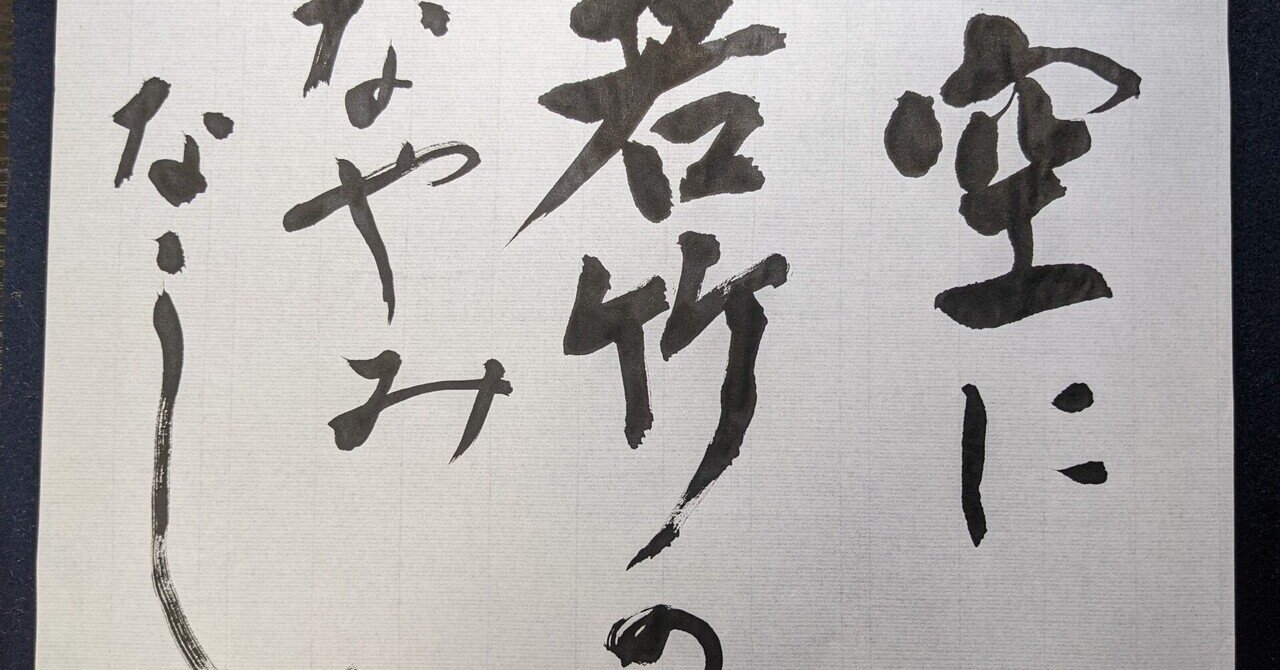 空に
若竹の
なやみ
なし